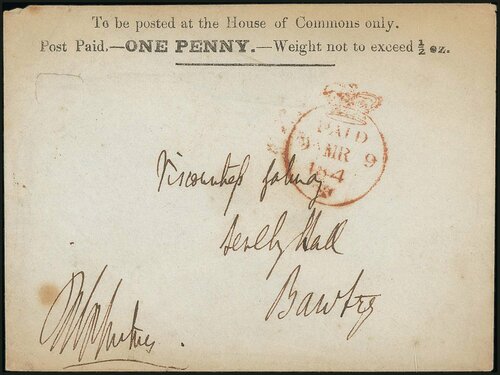 To be posted at the House of Commons only.
Post Paid.—ONE PENNY.—Weight not to exceed ½ oz.
PAID
9 MR 9
184
Viscountess Galway
Serlby Hall
Bawtry